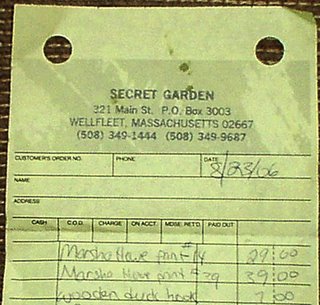 SECRET GARDEN
321 Main St. P.O. Box 3003
WELLFLEET, MASSACHUSETTS 02667
(508) 349-1444 (508) 349-9687
CUSTOMER'S ORDER NO. PHONE DATE 8/23/06
NAME
ADDRESS
CASH C.O.D. CHARGE ON ACCT. MDSE. RET'D. PAID OUT
Marsha Howe print #14 29:00
Marsha Howe print #39 39:00
wooden duck hook 7:00